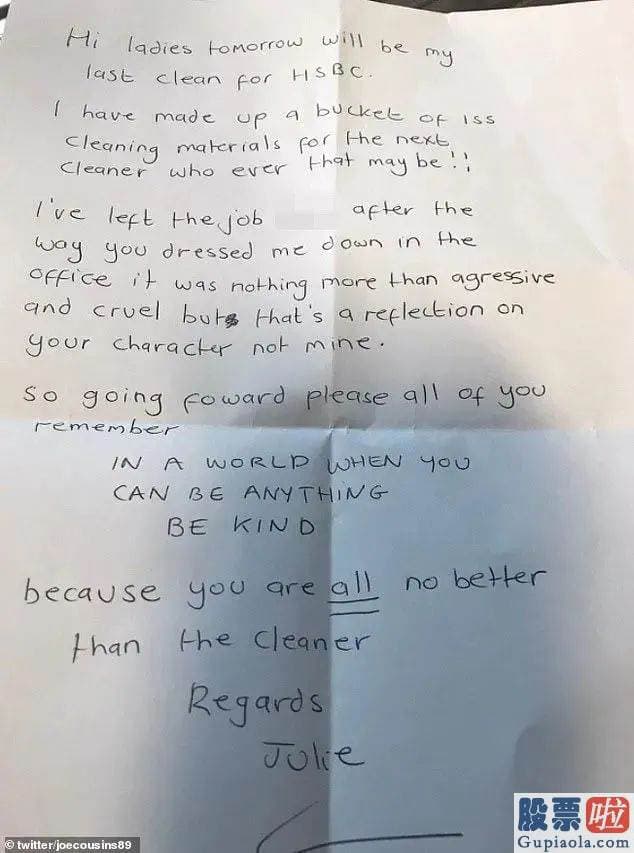 Hi ladies tomorrow will be my
last clean for HSBC.
I have made up a bucket of ISS
cleaning materials for the next
cleaner who ever that may be!!
I've left the job after the
way you dressed me down in the
office it was nothing more than agressive
and cruel but that's a reflection on
your character not mine.
So going foward please all of you
remember
IN A WORLD WHEN YOU
CAN BE ANYTHING
BE KIND
because you are all no better
than the cleaner
Regards
Julie
© twitter/joecousins89
股票啦
Gupiaola.com